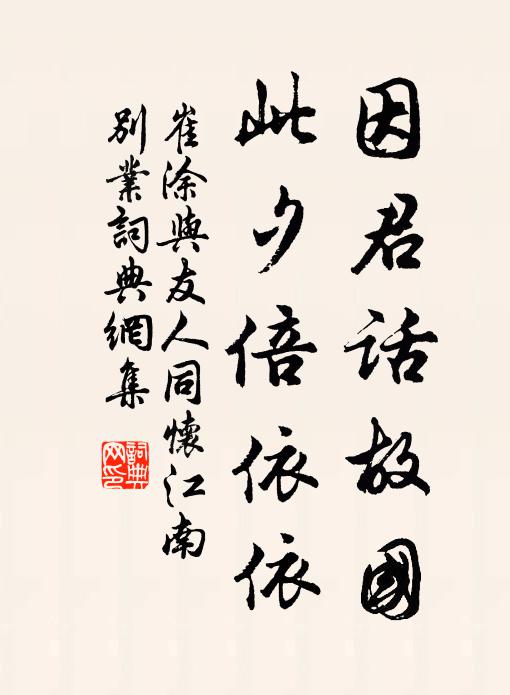 因君話故國
此夕倍依依
崔涂與友人同懷江南
別業詞典網集
詞典网印